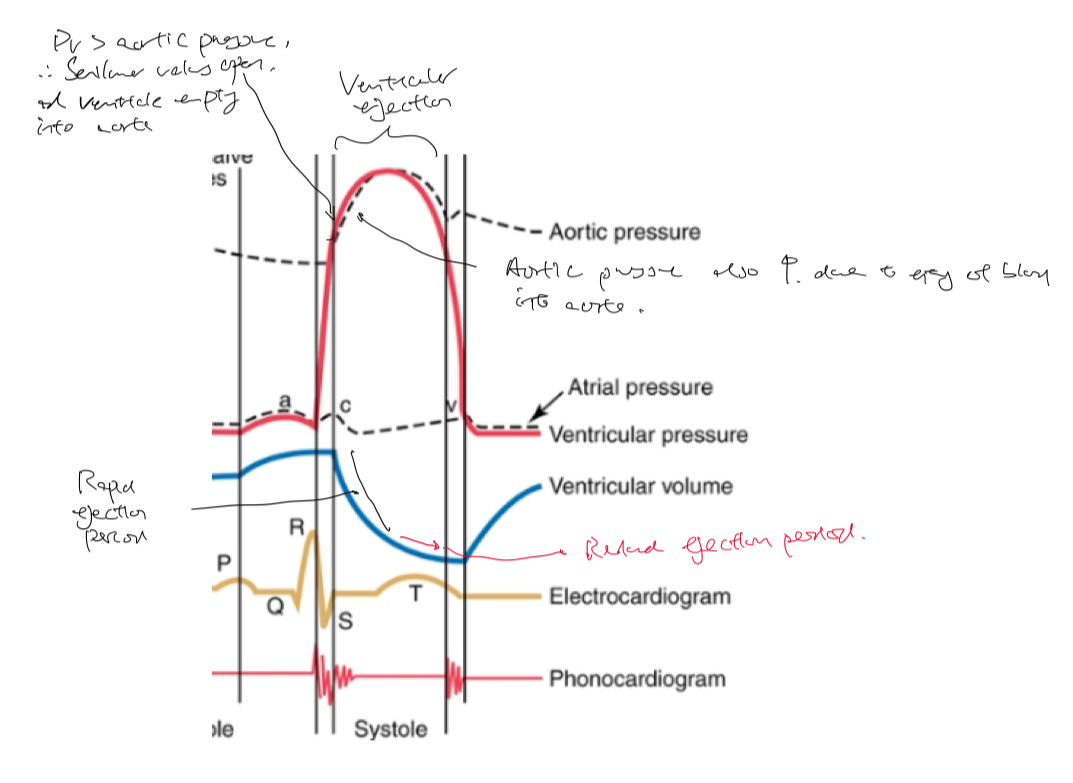 Pv > aortic pressure,
∴ Semilunar valves open.
and ventricle empty
into aorta
Ventricular
ejection
alve
es
Aortic pressure
Aortic pressure also ↑. due to of blood
into aorta.
a
c
v
Atrial pressure
Ventricular pressure
Rapid
ejection
period
Ventricular volume
R
ejection period.
P
Q
S
T
Electrocardiogram
Phonocardiogram
ole
Systole